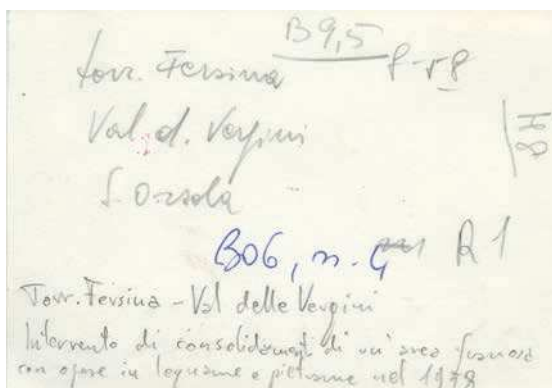 B9,5
torr. Fersina
Val d. Vergini
S. Orsola
B06, n. 4 R 1
Torr. Fersina - Val delle Vergini
Intervento di consolidament di un'area franosa
con opere in legname e pietrame nel 1978